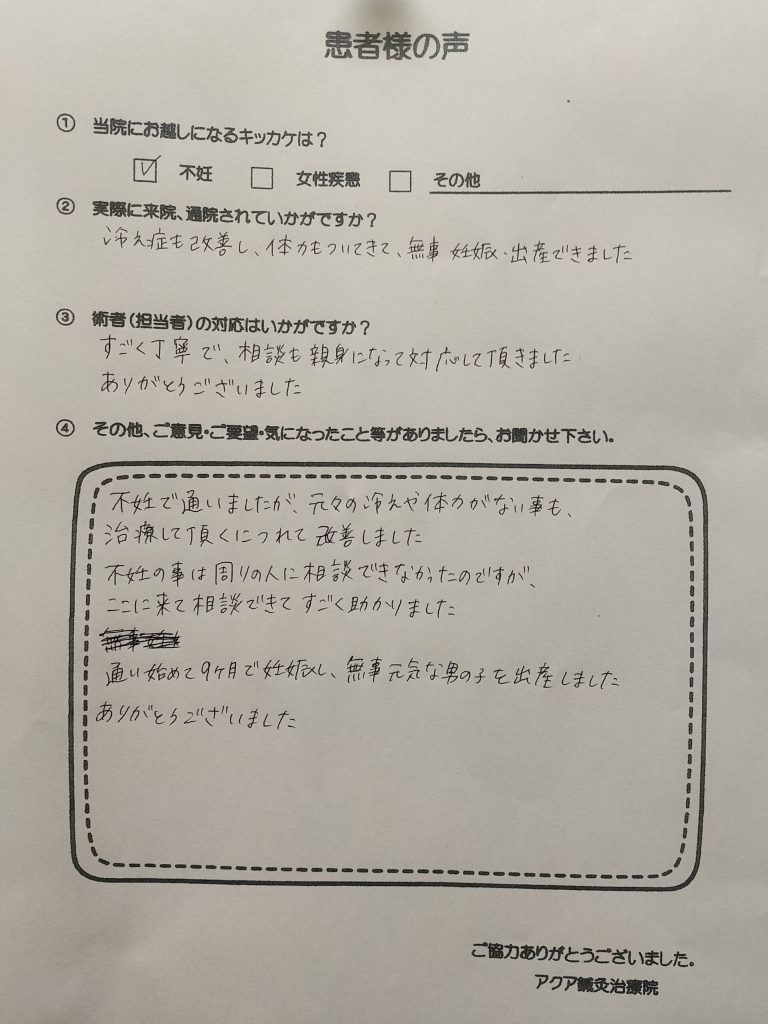 患者様の声
① 当院にお越しになるキッカケは？
☑ 不妊 □ 女性疾患 □ その他
② 実際に来院、通院されていかがですか？
冷え症も改善し、体力もついてきて、無事 妊娠・出産できました
③ 術者（担当者）の対応はいかがですか？
すごく丁寧で、相談も親身になって対応して頂きました
ありがとうございました
④ その他、ご意見・ご要望・気になったこと等がありましたら、お聞かせ下さい。
不妊で通いましたが、元々の冷えや体力がない事も、
治療して頂くにつれて改善しました
不妊の事は周りの人に相談できなかったのですが、
ここに来て相談できてすごく助かりました
通い始めて9ヶ月で妊娠し、無事元気な男の子を出産しました
ありがとうございました
ご協力ありがとうございました。
アクア鍼灸治療院